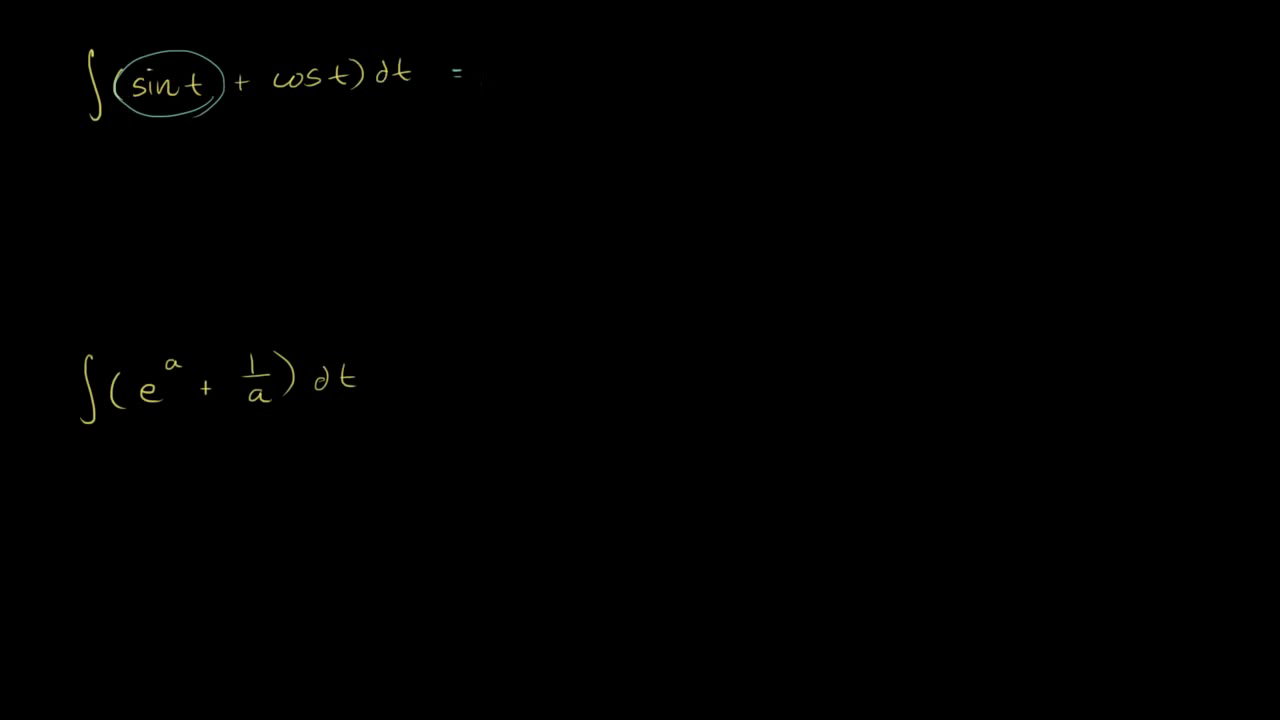 ∫(sin t + cos t) dt =
∫(e^a + 1/a) dt